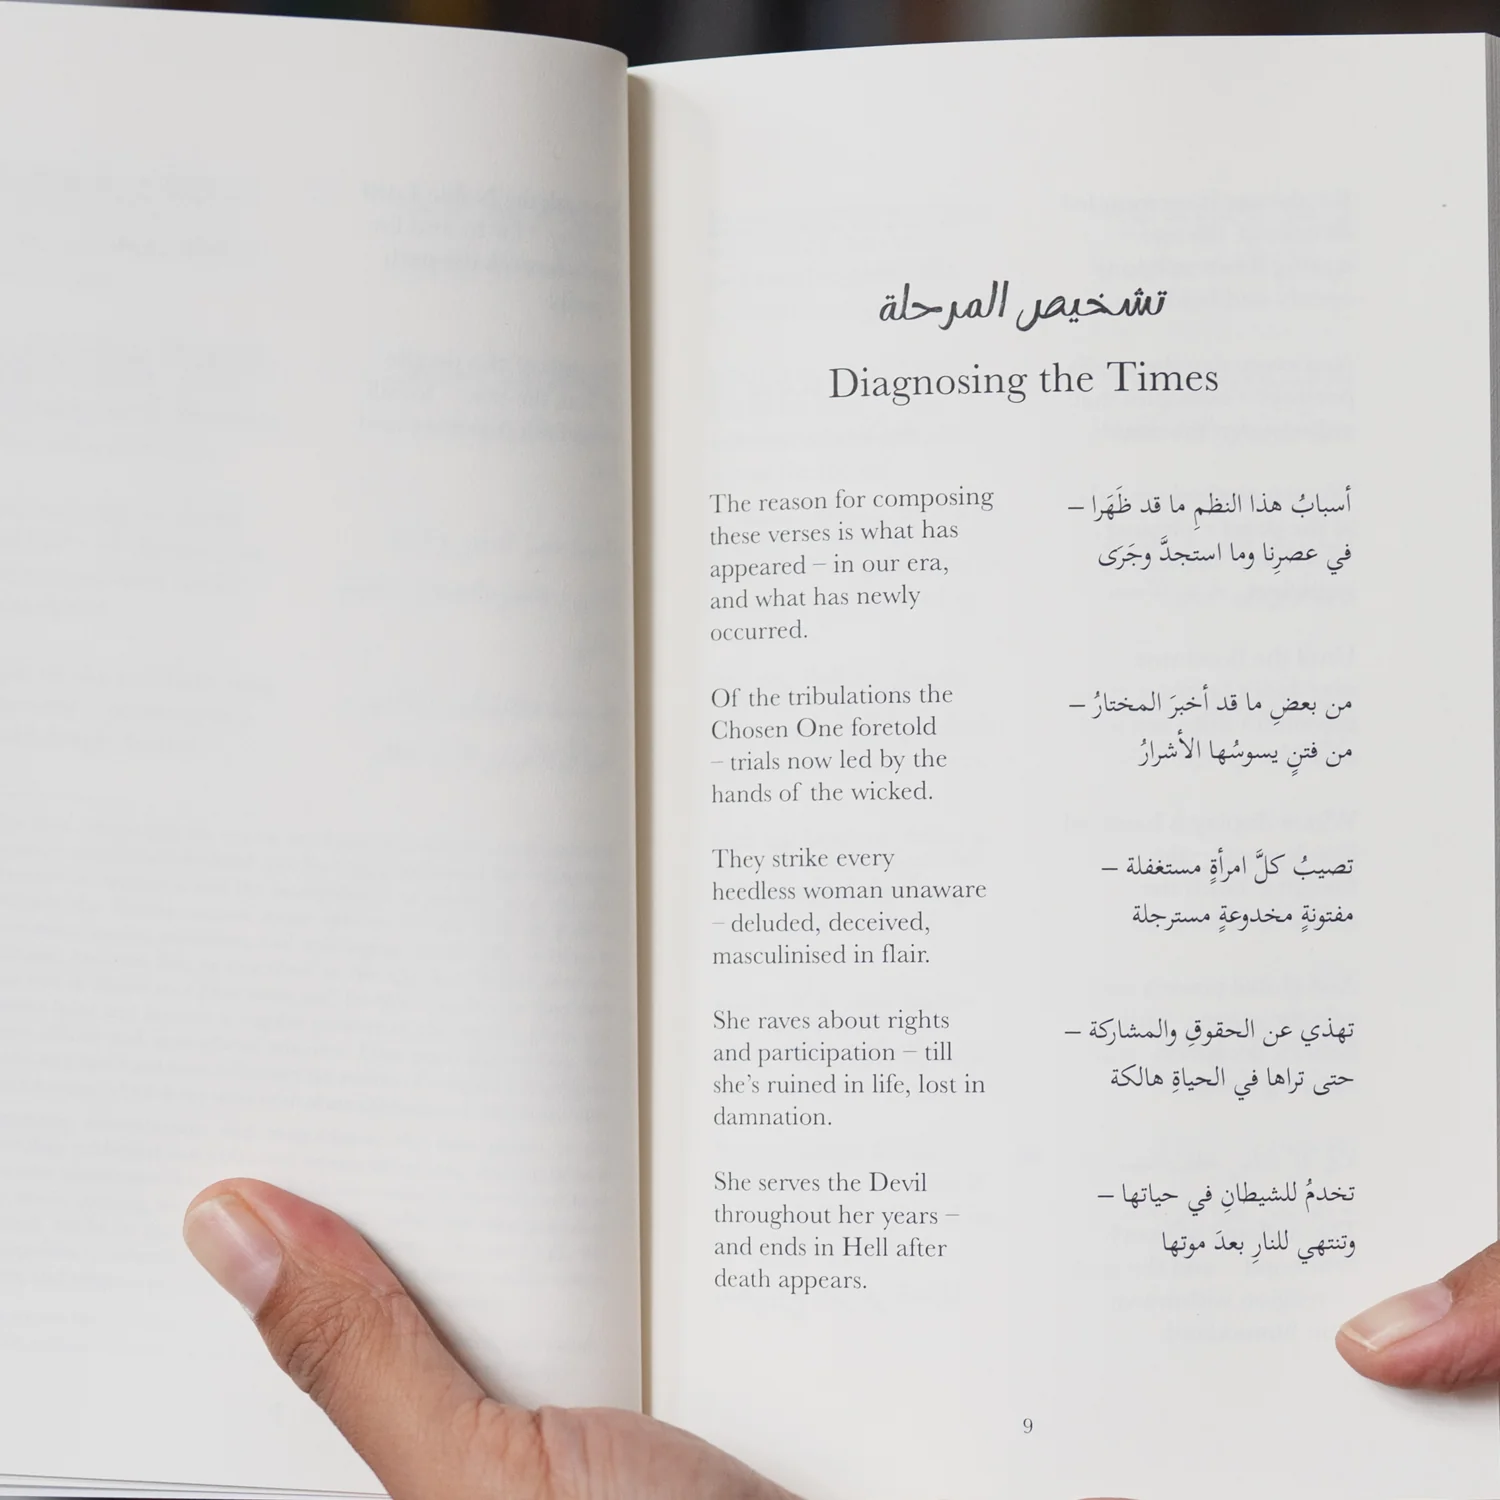 تشخيص المرحلة
Diagnosing the Times
The reason for composing
these verses is what has
appeared – in our era,
and what has newly
occurred.
أسبابُ هذا النظمِ ما قد ظَهَرا –
في عصرِنا وما استجدَّ وجَرَى
Of the tribulations the
Chosen One foretold
– trials now led by the
hands of the wicked.
من بعضِ ما قد أخبرَ المختارُ –
من فتنٍ يسوسُها الأشرارُ
They strike every
heedless woman unaware
– deluded, deceived,
masculinised in flair.
تصيبُ كلَّ امرأةٍ مستغفلة –
مفتونةٍ مخدوعةٍ مسترجلة
She raves about rights
and participation – till
she’s ruined in life, lost in
damnation.
تهذي عن الحقوقِ والمشاركة –
حتى تراها في الحياةِ هالكة
She serves the Devil
throughout her years –
and ends in Hell after
death appears.
تخدمُ للشيطانِ في حياتها –
وتنتهي للنارِ بعدَ موتها
9